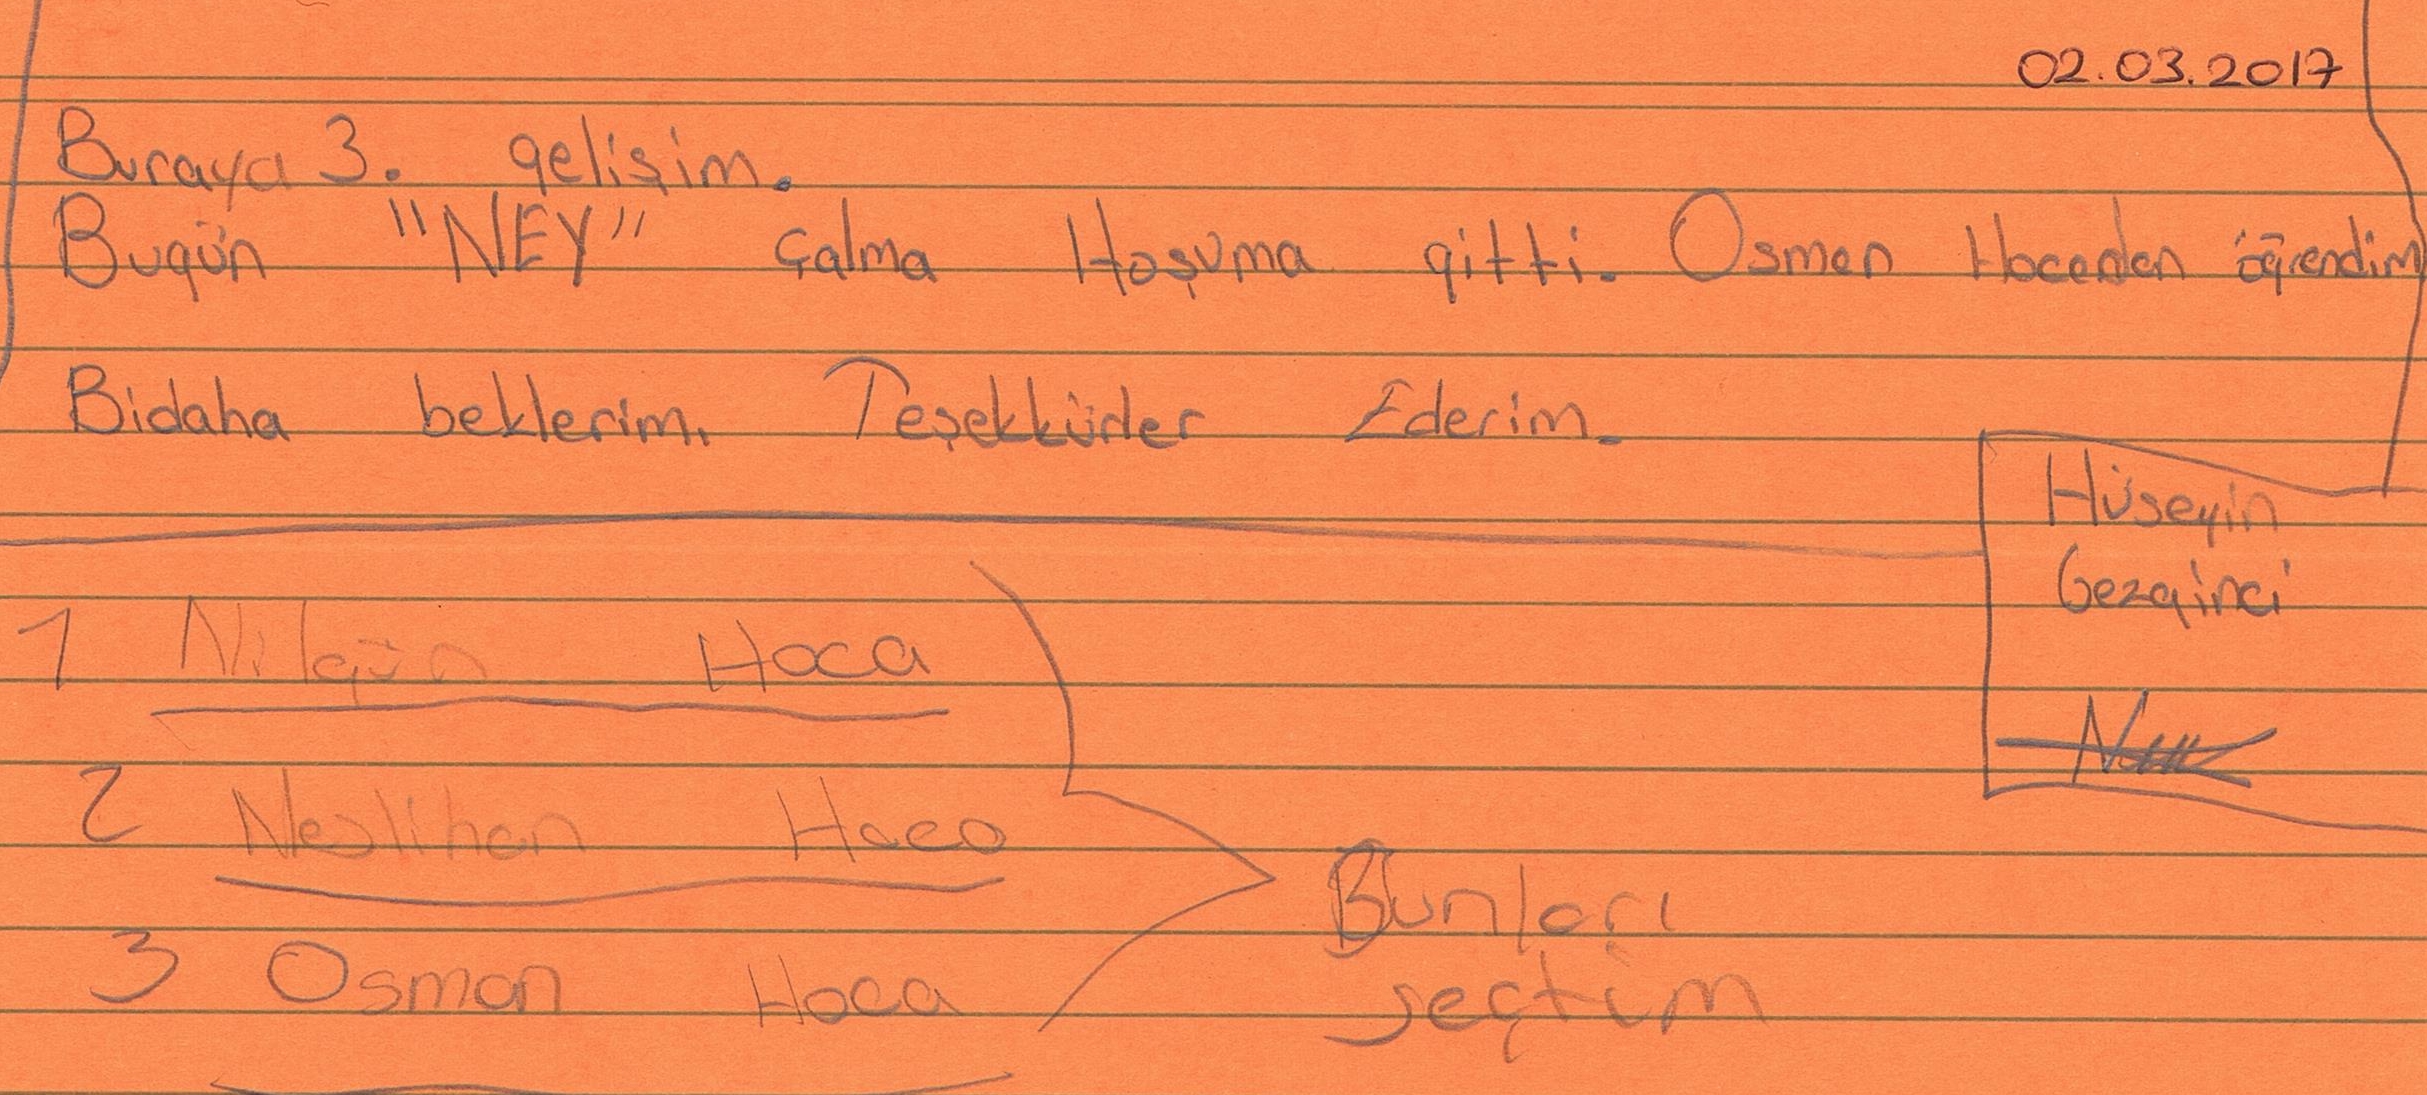 02.03.2017
Buraya 3. gelişim.
Bugün "NEY" çalma Hoşuma gitti. Osman Hocadan öğrendim
Bidaha beklerim. Teşekkürler Ederim.
Hüseyin
Gezginci
1 Nilgün Hoca
2 Neslihan Hoca
3 Osman Hoca
Bunları
seçtim